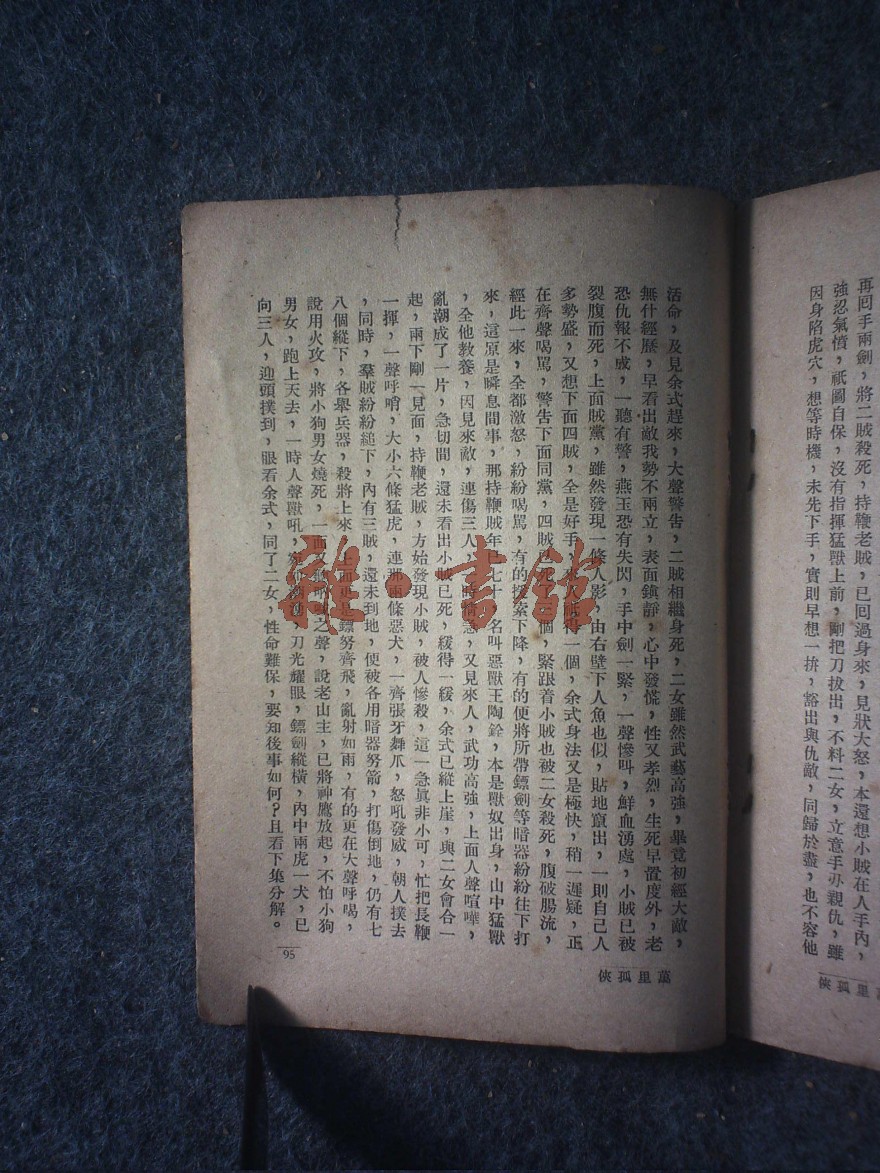 再回手兩劍，將二賊殺死，持鞭老賊，已回過身來，見狀大怒，本還想小賊在人手內，
強忍氣憤，祇圖自保，沒有指揮猛獸上前，剛把刀拔出，不料二女，立意手刃親仇，雖
因身陷虎穴，想等時機，未先下手，實則早想一拚，豁出與仇敵，同歸於盡，也不容他
俠孤里萬
活命，及見余式趕來，大聲警告，二賊相繼身死，二女雖然武藝高強，畢竟初經大敵，
無什經歷，早看出敵我勢不兩立，表面鎮靜，心中發慌，性又孝烈，生死早置度外，老
恐仇報不成，一聽有警，燕玉恐有失閃，手中劍一緊，一聲慘叫，鮮血湧處，小賊已被
裂腹而死，上面賊黨，雖然發現一條人影，由右壁下人魚也似，貼地竄出，一則自己人
多勢盛，又想下面四賊，全是好手，來人祇得一個，余式身法又是極快，稍一遲疑，正
在齊聲喝罵，警告下面同黨，四賊已死個，緊跟着小賊也被二女殺死，腹破腸流，
經此一來，全都激怒，紛紛喝罵，有的探索下降，有的便將所帶鏢劍等暗器紛紛往下打
來，這原是瞬息間事，那持鞭賊年已七十，名叫惡獸王陶銓，本是獸奴出身，山中猛獸
，全他教養，因見來敵，連傷三人，一時情急，又見來人，武功高強，上面人聲喧嘩，
亂潮成了一片，急切間，還未看出小賊已死，緩得一緩，余式已縱上崖，與二女會合一
起，兩下剛一見面，持鞭老賊，方始發現小賊，被人慘殺，這一急眞非小可，忙把長鞭
一揮，一聲呼哨，大小六條猛虎，連那兩條惡犬，一齊張牙舞爪，怒吼發威，朝人撲去
，同時，羣賊紛紛縋下，內有三賊，還未到地，便被各用暗器努箭，打傷倒地，仍有七
八個縱下，各舉兵器，殺將上來，上面更是鏢努齊飛，亂射如雨，有的更在大聲呼喝，
說用火攻，將小狗男女燒死，一面又之聲，說老山主，已將神鷹放起，不怕小狗
男女，跑上天去，一時人聲獸吼，刀光耀眼，鏢劍縱橫，內中兩虎一犬，已
向三人，迎頭撲到，眼看余式，同了二女，性命難保，要知後事如何？且看下集分解。
俠孤里萬
95
雜·書館